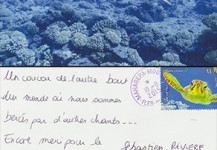 Un coucou de l'autre bout
du monde où nous sommes
bercés par d'autres chants...
Encore merci pour le
Sébastien RIVIERE